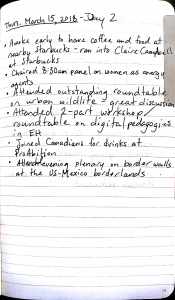 Thurs. March 15, 2018 - Day 2
• Awake early to have coffee and food at
nearby Starbucks - ran into Claire Campbell
at Starbucks
• Chaired 8:30am panel on women as energy
agents
• Attended outstanding roundtable
on urban wildlife - great discussion
• Attended 2-part workshop/
roundtable on digital pedagogies
in EH
• Joined Canadians for drinks at
Prohibition
• evening plenary on border walls
at the US-Mexico borderlands